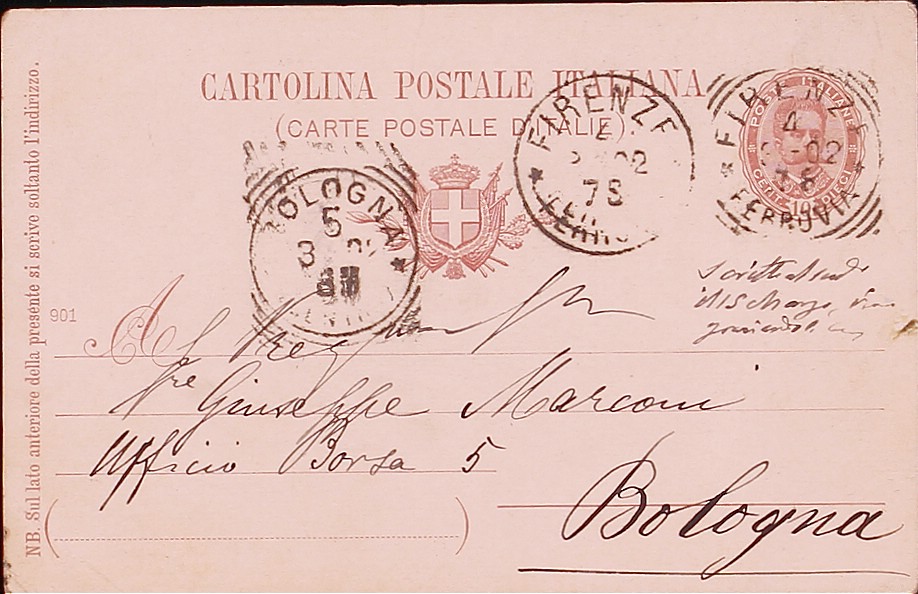 CARTOLINA POSTALE ITALIANA
(CARTE POSTALE D'ITALIE)
POSTE ITALIANE
CENT. 10 DIECI
FIRENZE
4
02
7S
FERROVIA
FIRENZE
4
-02
FERROVIA
BOLOGNA
5
3
Al
Giuseppe Marconi
Ufficio Borsa 5
Bologna
901
NB. Sul lato anteriore della presente si scrive soltanto l'indirizzo.